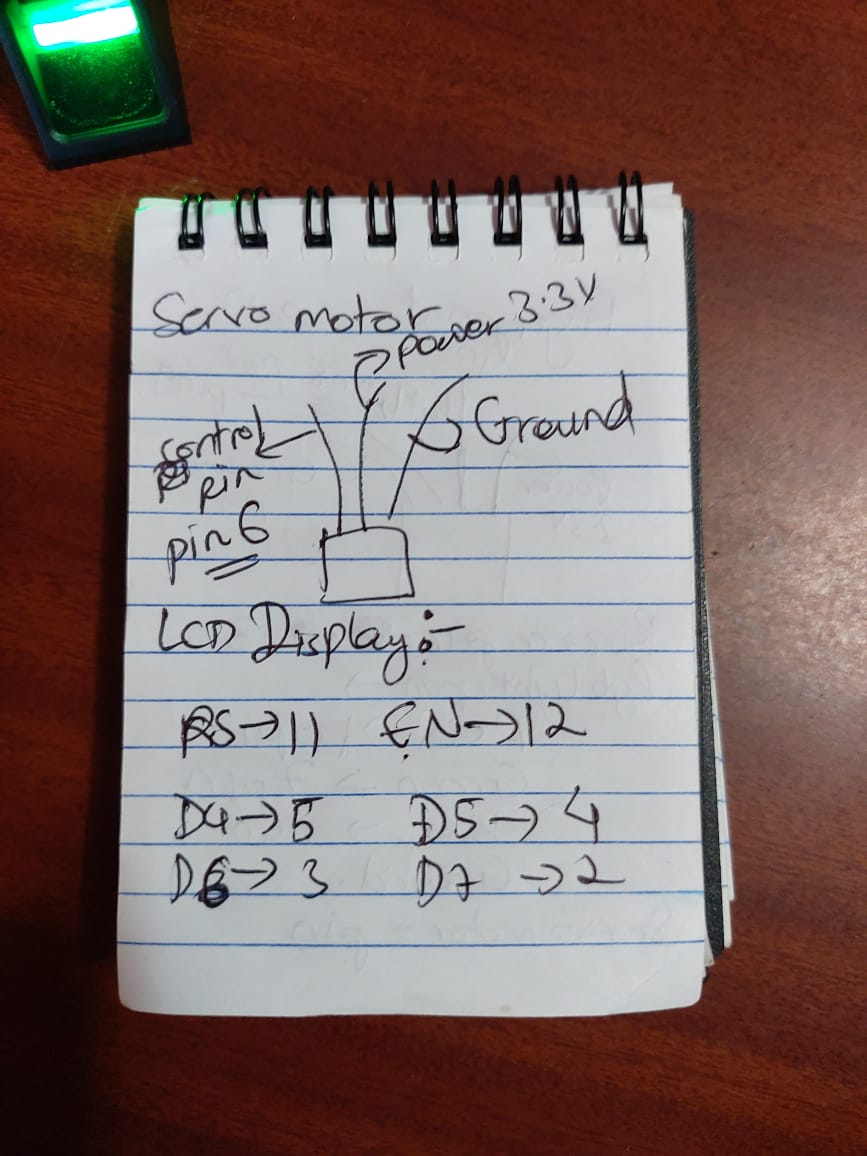 Servo motor
power 3.3V
Ground
control
pin
pin 6
LCD Display:-
RS→11 EN→12
D4→5 D5→4
D6→3 D7→2